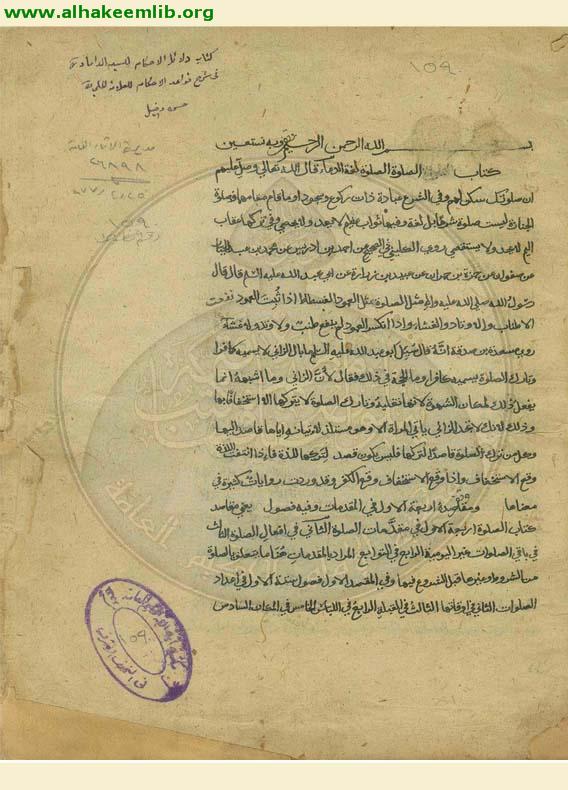 www.alhakeemlib.org
١٥٩
كتاب دلائل الاحكام للسيد الداماد
في شرح قواعد الاحكام للعلامة الحلي
١٥٩
بسم الله الرحمن الرحيم وبه نستعين
كتاب الصلوة الصلوة لغة الدعاء قال الله تعالى وصل عليهم
ان صلوتك سكن لهم وفي الشرع عبادة ذات ركوع وسجود او ما قام مقامهما فصلوة
الجنازة ليست صلوة شرعا بل لغة وفيها ثواب عظيم لا يعد ولا يحصى وفي تركها عقاب
اليم لا يحد ولا يستقصى روى الكليني في الصحيح عن احمد بن ادريس عن محمد بن عبد الجبار
عن صفوان عن حمزة بن حمران عن عبيد بن زرارة عن ابي عبد الله عليه السلم قال قال
رسول الله صلى الله عليه واله مثل الصلوة مثل العمود الفسطاط اذا ثبت العمود نفعت
الاطناب والاوتاد والغشاء واذا انكسر العمود لم ينفع طنب ولا وتد ولا غشاء
روى مسعدة بن صدقة انه قال سئل ابو عبد الله عليه السلم ما بال الزاني لا تسميه كافرا
وتارك الصلوة تسميه كافرا وما الحجة في ذلك فقال لان الزاني وما اشبهه انما
يفعل ذلك لمكان الشهوة لانها تغلبه وتارك الصلوة لا يتركها الا استخفافا بها
وذلك لانك لا تجد الزاني ياتي المراة الا وهو مستلذ لاتيانه اياها قاصدا اليها
وكل من ترك الصلوة قاصدا لتركها فليس يكون قصده لتركها اللذة فاذا انتفت اللذة
وقع الاستخفاف واذا وقع الاستخفاف وقع الكفر وقد وردت روايات كثيرة في
معناها ومقاصده اربعة الاول في المقدمات وفيه فصول يعني مقاصد
كتاب الصلوة اربعة الاول في مقدمات الصلوة الثاني في افعال الصلوة الثالث
في باقي الصلوات غير اليومية الرابع في التوابع المراد بالمقدمات هنا ما يتعلق بالصلوة
من الشروط وغيرها قبل الشروع فيها وفي المقصد الاول فصول ستة الاول في اعداد
الصلوات الثاني في اوقاتها الثالث في القبلة الرابع في اللباس الخامس في المكان السادس
١٥٩
في النجف الاشرف